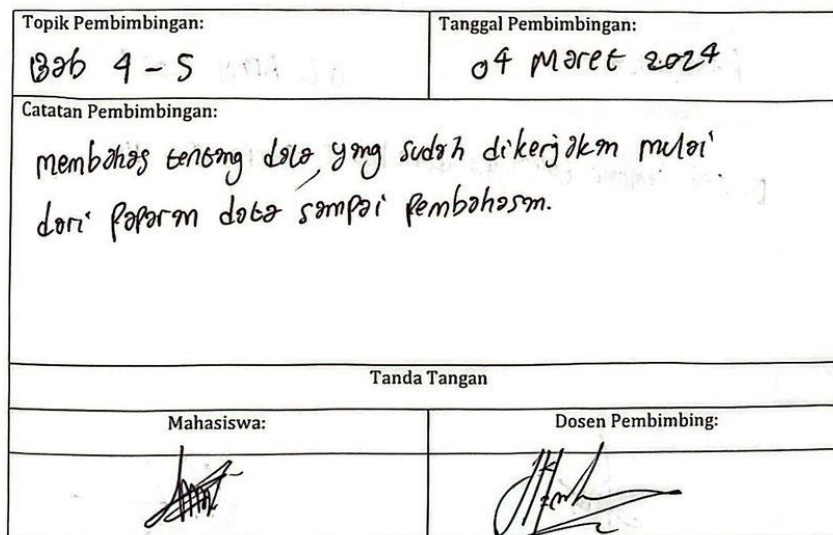 Topik Pembimbingan:
Bab 4 - 5
Tanggal Pembimbingan:
04 Maret 2024
Catatan Pembimbingan:
membahas tentang data yang sudah dikerjakan mulai
dari paparan data sampai pembahasan.
Tanda Tangan
Mahasiswa:
Dosen Pembimbing: